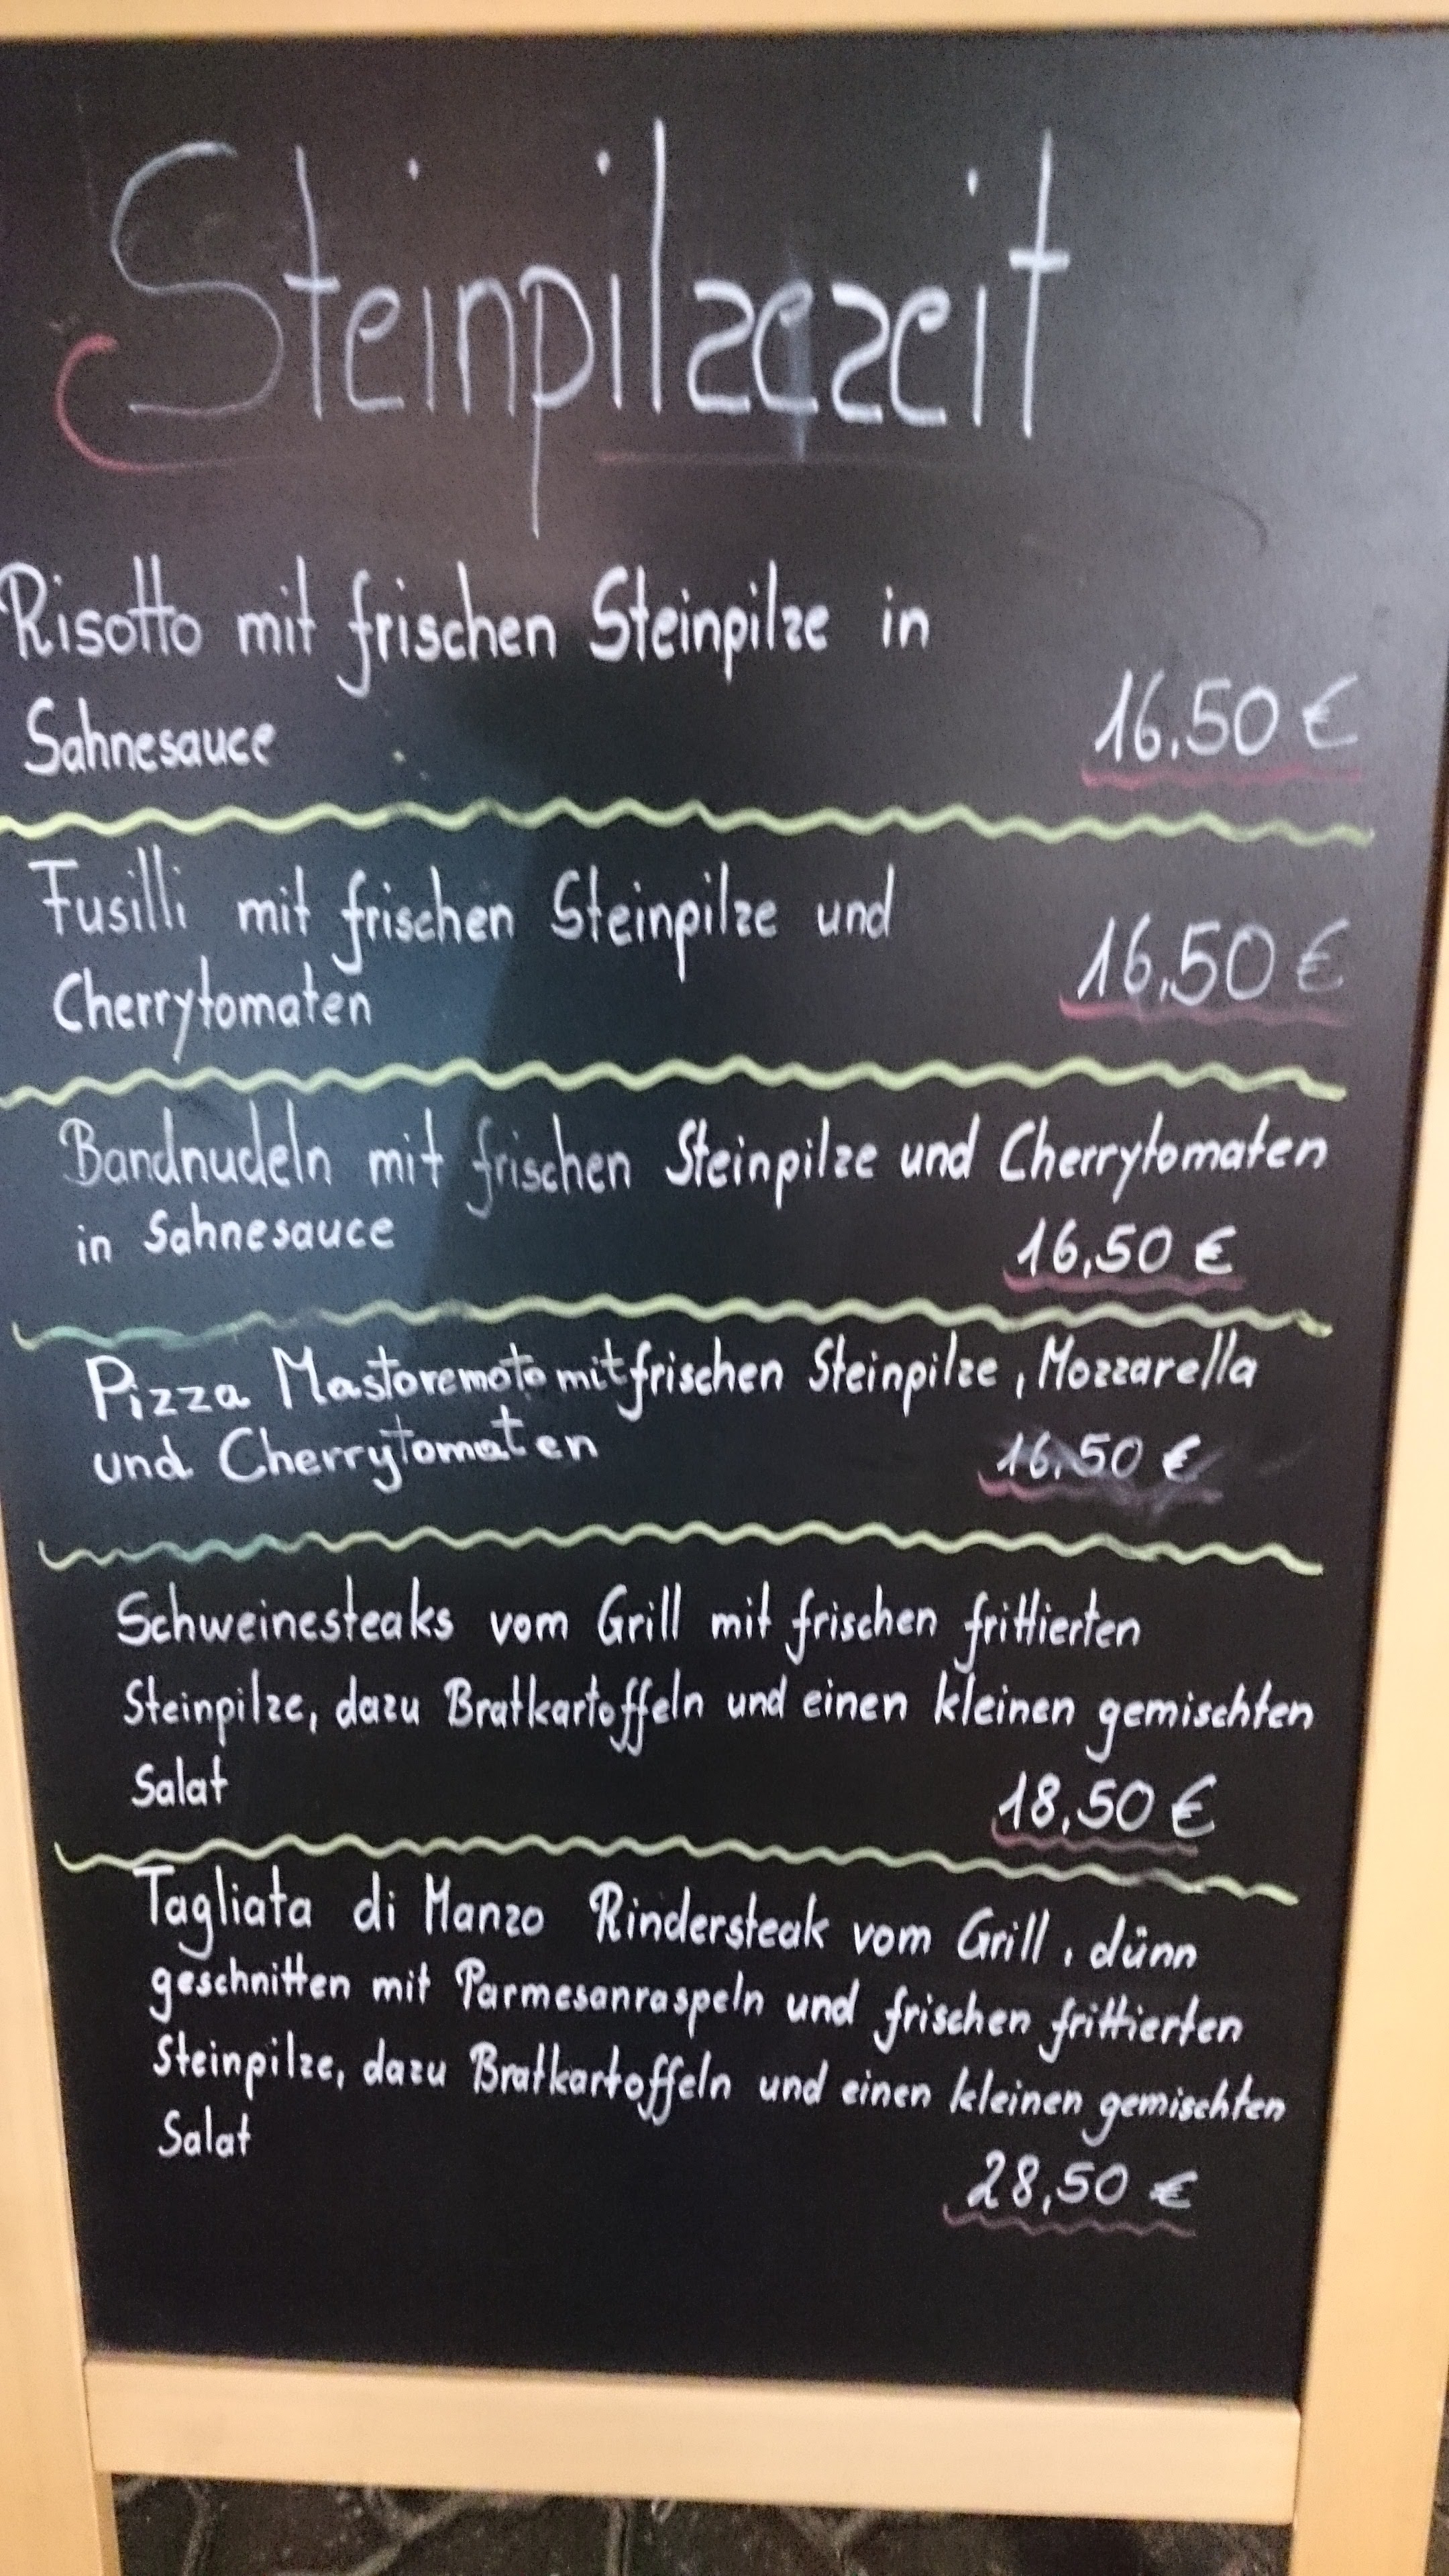 Steinpilzezeit
Risotto mit frischen Steinpilze in
Sahnesauce
16.50 €
Fusilli mit frischen Steinpilze und
Cherrytomaten
16,50 €
Bandnudeln mit frischen Steinpilze und Cherrytomaten
in Sahnesauce
16,50 €
Pizza Mastoremoto mit frischen Steinpilze, Mozzarella
und Cherrytomaten
16,50 €
Schweinesteaks vom Grill mit frischen frittierten
Steinpilze, dazu Bratkartoffeln und einen kleinen gemischten
Salat
18,50 €
Tagliata di Manzo Rindersteak vom Grill, dünn
geschnitten mit Parmesanraspeln und frischen frittierten
Steinpilze, dazu Bratkartoffeln und einen kleinen gemischten
Salat
28,50 €